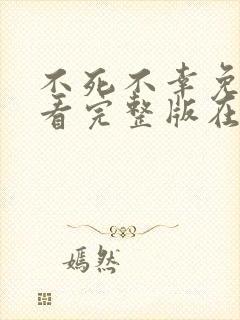 不死不幸免
看完整版在
嫣然